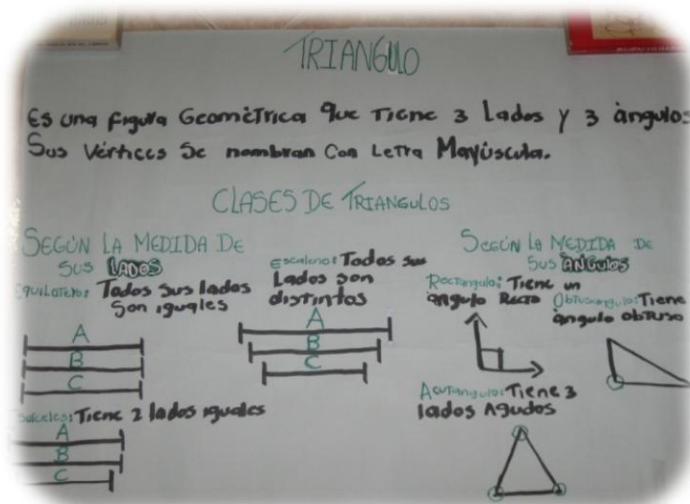 TRIANGULO
Es una figura Geomètrica que Tiene 3 Lados y 3 àngulos
Sus Vèrtices Se nombran Con Letra Mayùscula.
CLASES DE TRIANGULOS
SEGÙN LA MEDIDA DE
SUS LADOS
Equilatero: Todos sus lados
son iguales
A
B
C
Escaleno: Todos sus
Lados son
distintos
A
B
C
Isòceles: Tiene 2 lados iguales
A
B
C
SEGÙN LA MEDIDA DE
SUS ÀNGULOS
Rectangulo: Tiene un
àngulo Recto
Obtusangulo: Tiene
àngulo obtuso
Acutangulo: Tiene 3
lados Agudos